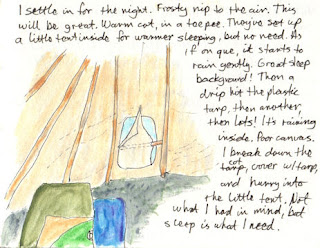 I settle in for the night. Frosty nip to the air. This
will be great. Warm cot, in a teepee. They've set up
a little tent inside for warmer sleeping, but no need. As
if on que, it starts to
rain gently. Great sleep
background! Then a
drip hit the plastic
tarp, then another,
then lots! It's raining
inside. Poor canvas.
I break down the
cot
tarp, cover w/tarp,
and hurry into
the little tent. Not
what I had in mind, but
sleep is what I need.